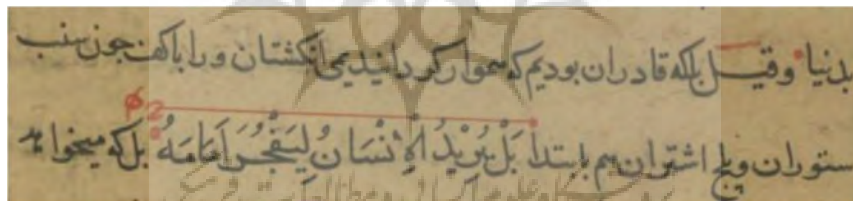 بدنیا وقیل بلکه قادران بودیم که هموار کردانیدیمی انکشتان ورا باکف جون سنب
ستوران وپلج اشتران هم بابتدا بَلْ یُرِیْدُ الْاِنْسَانُ لِیَفْجُرَ اَمَامَهُ بل که میخواهد